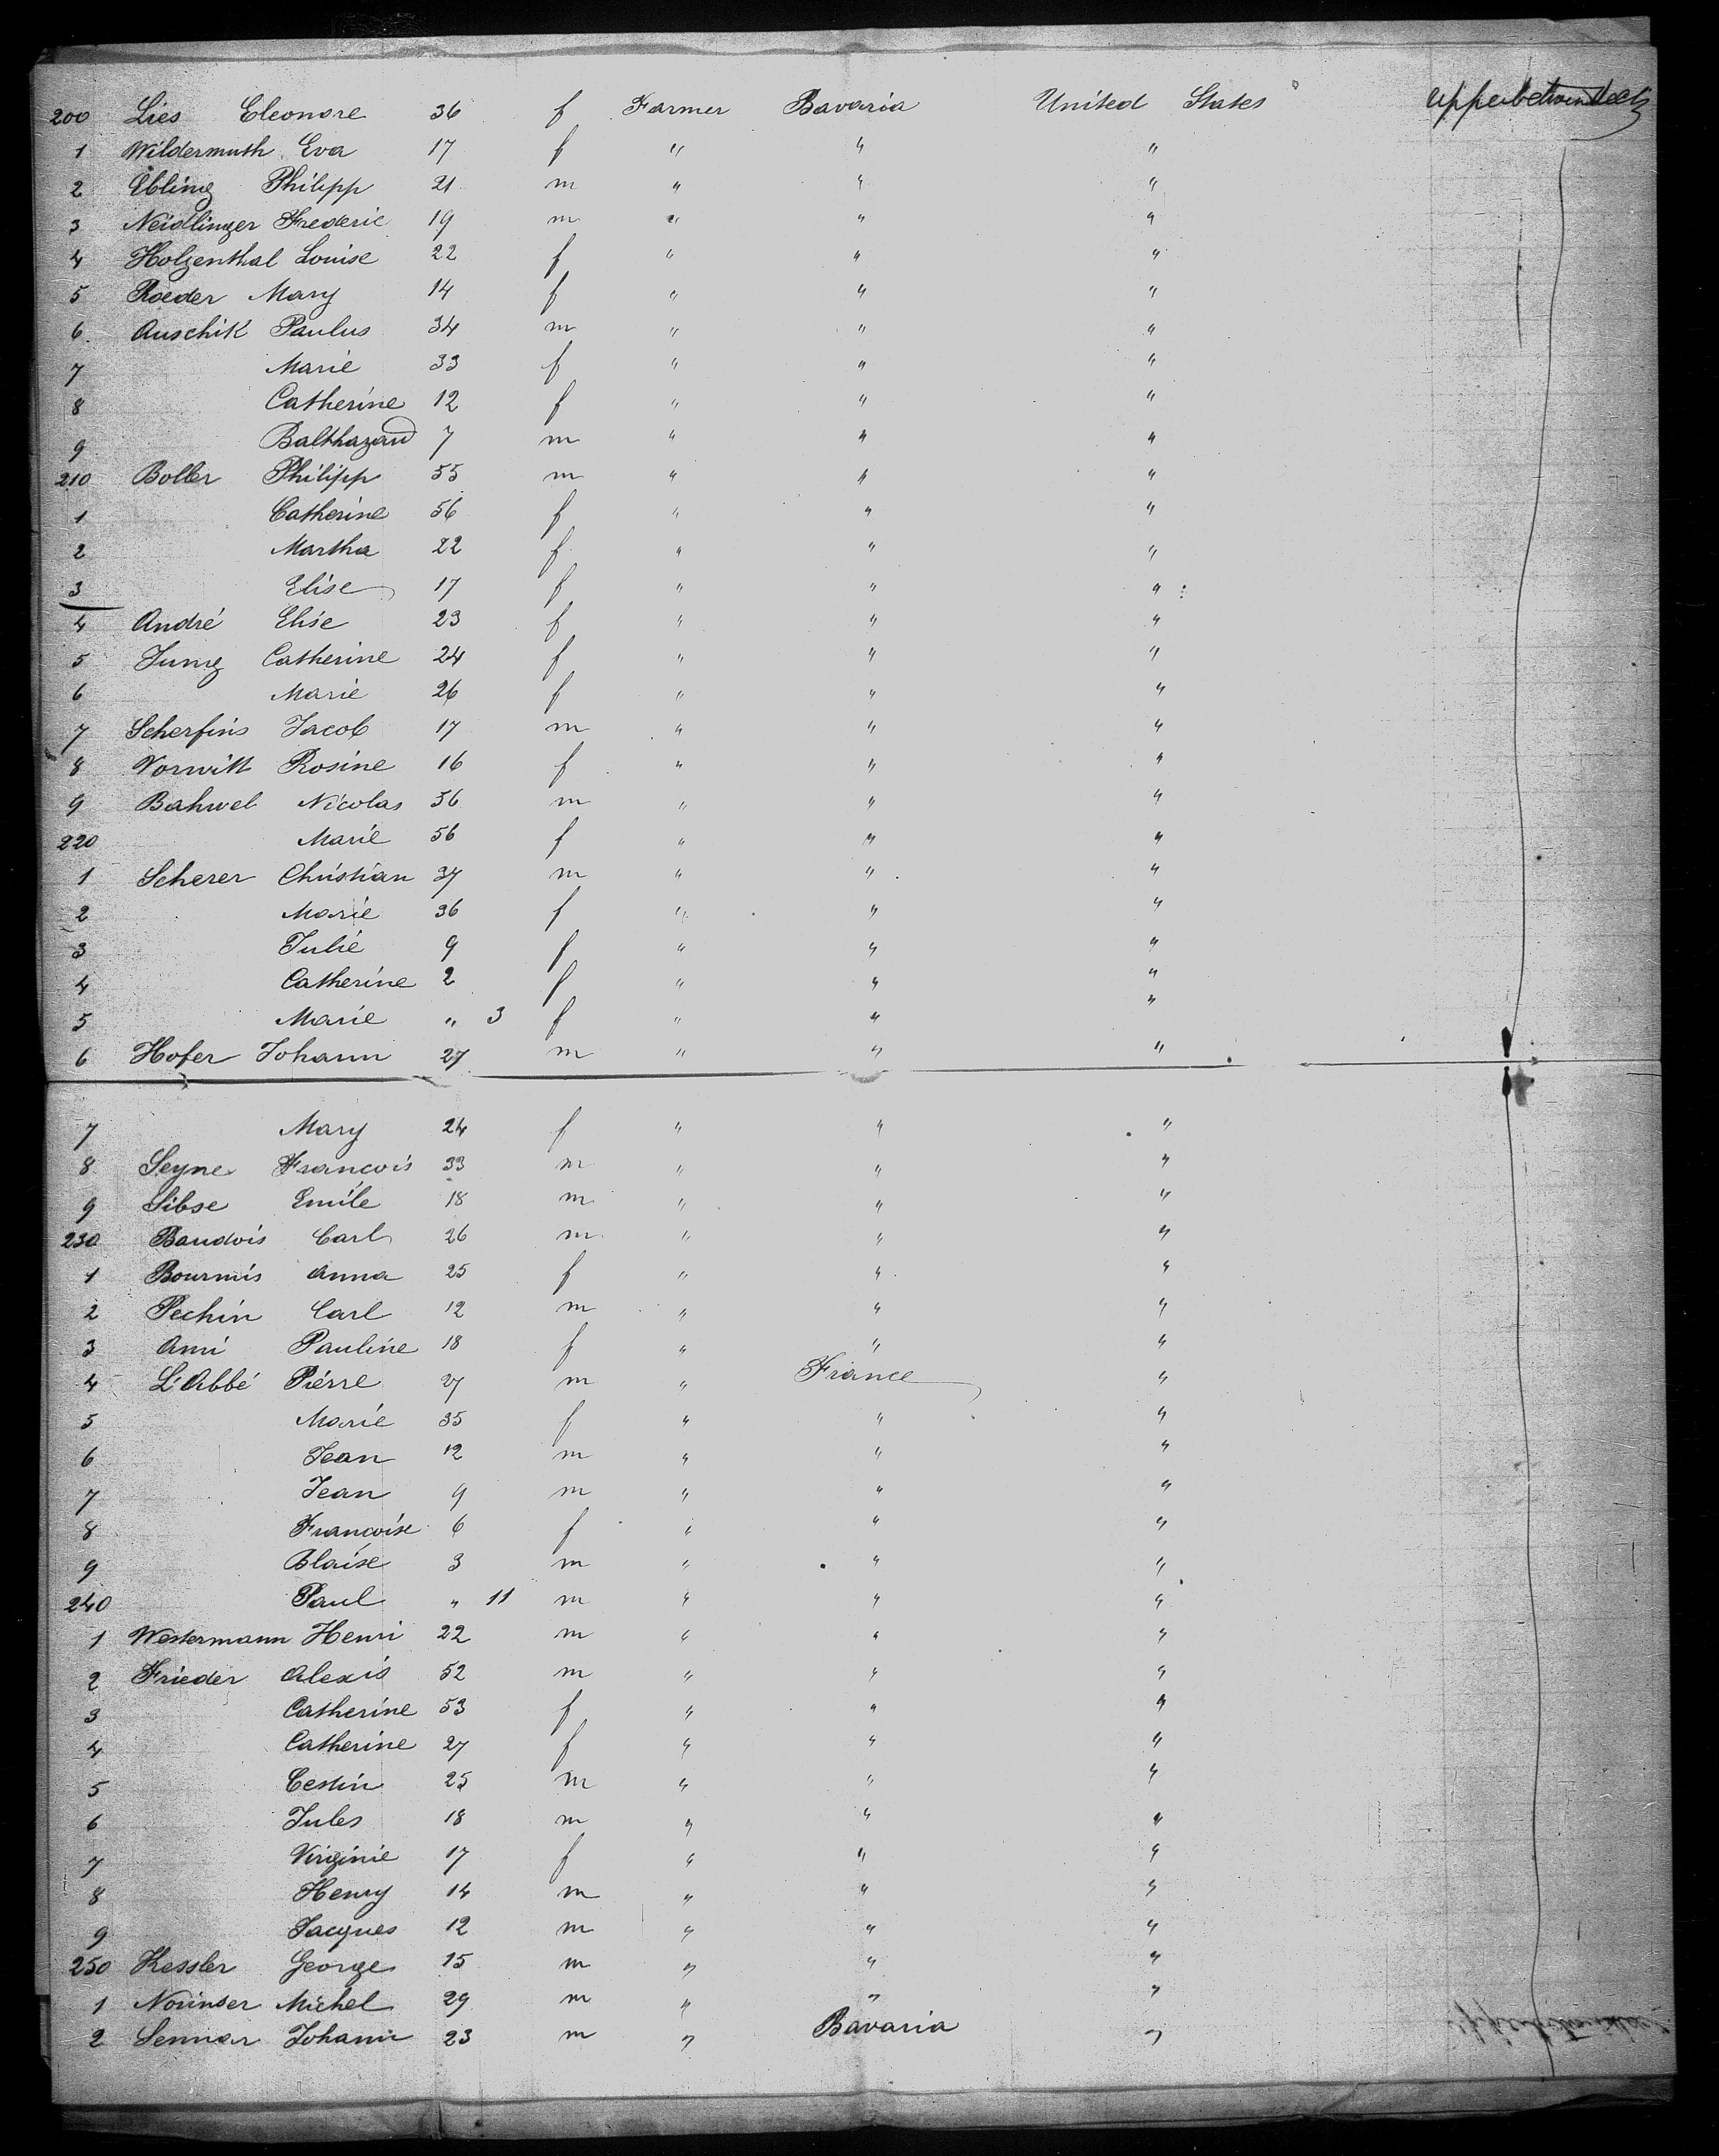 200 Lies Eleonore 36 f Farmer Bavaria United States
1 Wildermuth Eva 17 f " " "
2 Ebling Philipp 21 m " " "
3 Neidlinger Frederic 19 m " " "
4 Holzenthal Louise 22 f " " "
5 Roeder Mary 14 f " " "
6. Auschik Paulus 34 m " " "
7 Marie 33 f " " "
8 Catherine 12 f " " "
9 Balthazard 7 m " " "
210 Boller Philipp 55 m " " "
1 Catherine 56 f " " "
2 Martha 22 f " " "
3 Elise 17 f " " "
4 André Elise 23 f " " "
5 Jung Catherine 24 f " " "
6 Marie 26 f " " "
7 Scherfins Jacob 17 m " " "
8 Vorwitt Rosine 16 f " " "
9 Bahwel Nicolas 56 m " " "
220 Marie 56 f " " "
1 Scherer Christian 37 m " " "
2 Marie 36 f " " "
3 Julie 9 f " " "
4 Catherine 2 f " " "
5 Marie " 3 f " " "
6 Hofer Johann 27 m " " "
7 Mary 24 f " " "
8 Seyne Francois 33 m " " "
9 Sibse Emile 18 m " " "
230 Baudois Carl 26 m " " "
1 Bournis Anna 25 f " " "
2 Pechin Carl 12 m " " "
3 Ami Pauline 18 f " " "
4 L'Abbé Pierre 27 m " France "
5 Marie 35 f " " "
6 Jean 12 m " " "
7 Jean 9 m " " "
8 Francoise 6 f " " "
9 Blaise 3 m " " "
240 Paul " 11 m " " "
1 Westermann Henri 22 m " " "
2 Frieder Alexis 52 m " " "
3 Catherine 53 f " " "
4 Catherine 27 f " " "
5 Cestin 25 m " " "
6 Jules 18 m " " "
7 Virginie 17 f " " "
8 Henry 14 m " " "
9 Jacques 12 m " " "
250 Kessler George 15 m " " "
1 Norinser Michel 29 m " " "
2 Sennar Johann 23 m " Bavaria "